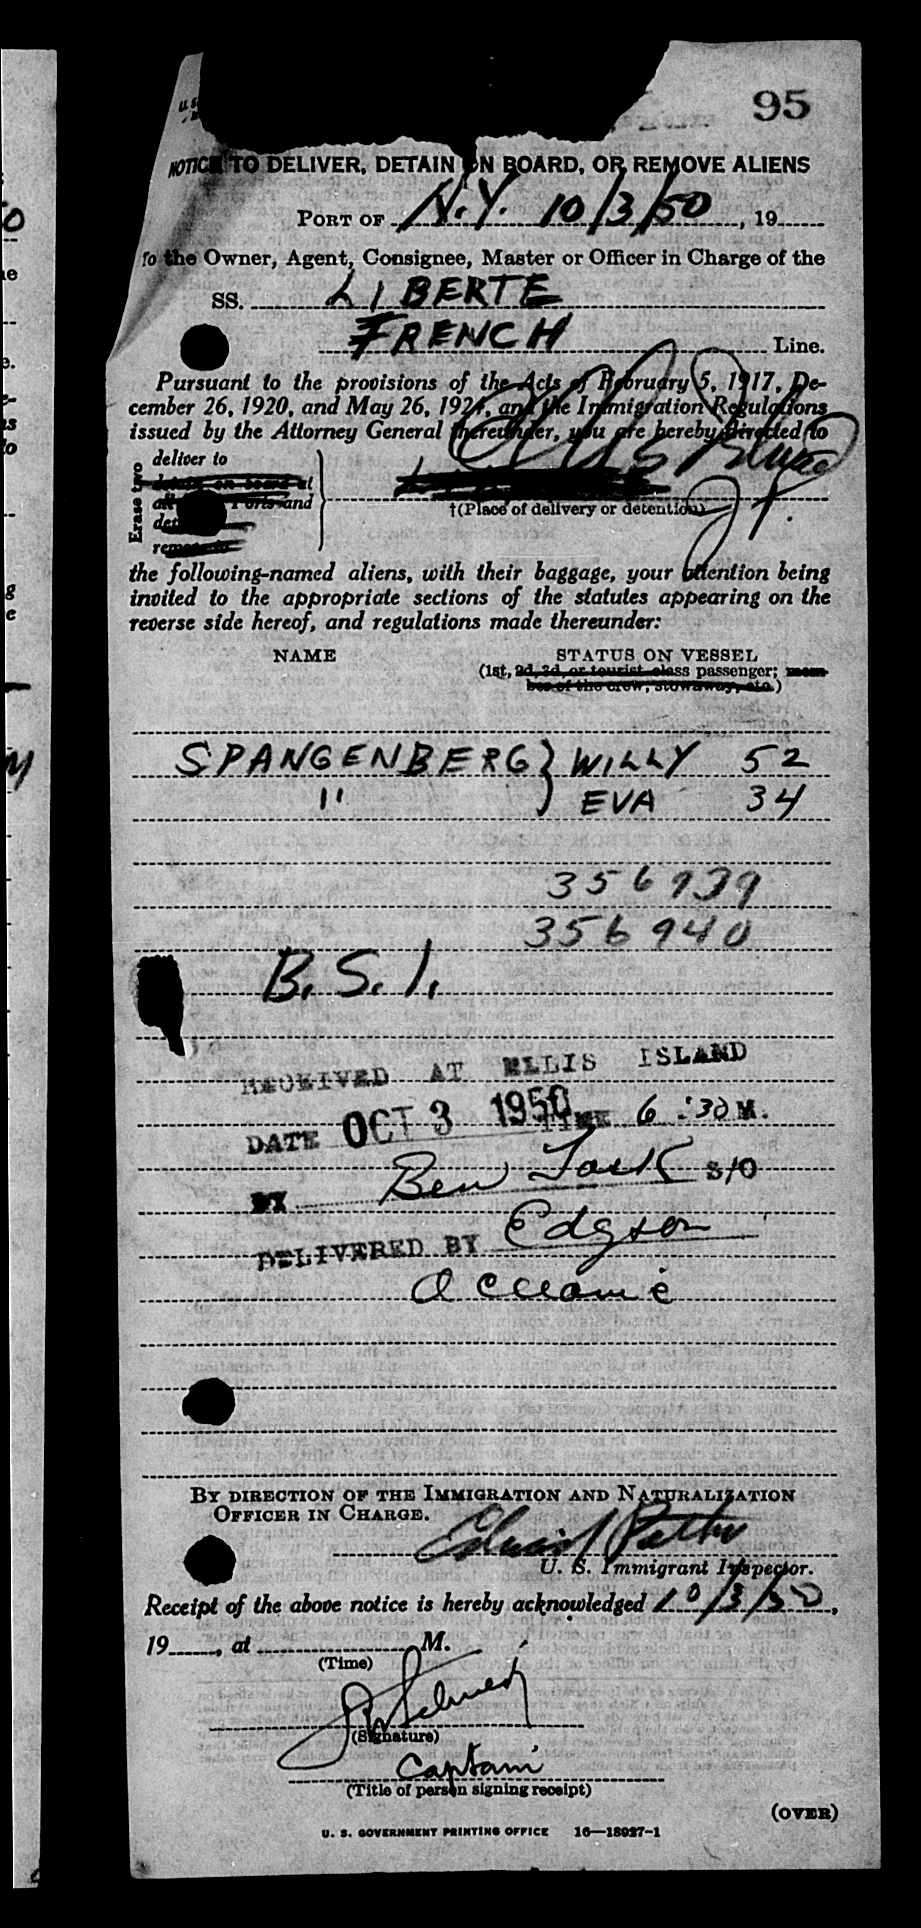 95
NOTICE TO DELIVER, DETAIN ON BOARD, OR REMOVE ALIENS
PORT OF N.Y. 10/3/50, 19
To the Owner, Agent, Consignee, Master or Officer in Charge of the
SS. LIBERTE
FRENCH Line.
Pursuant to the provisions of the Acts of February 5, 1917, De-
cember 26, 1920, and May 26, 1924, and the Immigration Regulations
issued by the Attorney General thereunder, you are hereby directed to
Erase two
deliver to
detain on board at
Ports and
Ellis Island
†(Place of delivery or detention)
the following-named aliens, with their baggage, your attention being
invited to the appropriate sections of the statutes appearing on the
reverse side hereof, and regulations made thereunder:
NAME STATUS ON VESSEL
(1st, 2d, 3d, or tourist class passenger; mem-
ber of the crew, stowaway, etc.)
SPANGENBERG } WILLY 52
" } EVA 34
356939
356940
B.S.I.
RECEIVED AT ELLIS ISLAND
DATE OCT 3 1950 TIME 6:30 M.
BY Ben S/O
DELIVERED BY Edgson
By direction of the Immigration and Naturalization
Officer in Charge.
U. S. Immigrant Inspector.
Receipt of the above notice is hereby acknowledged 10/3/50,
19, at M.
(Time)
(Signature)
Captain
(Title of person signing receipt)
(OVER)
U. S. GOVERNMENT PRINTING OFFICE 16—18927-1